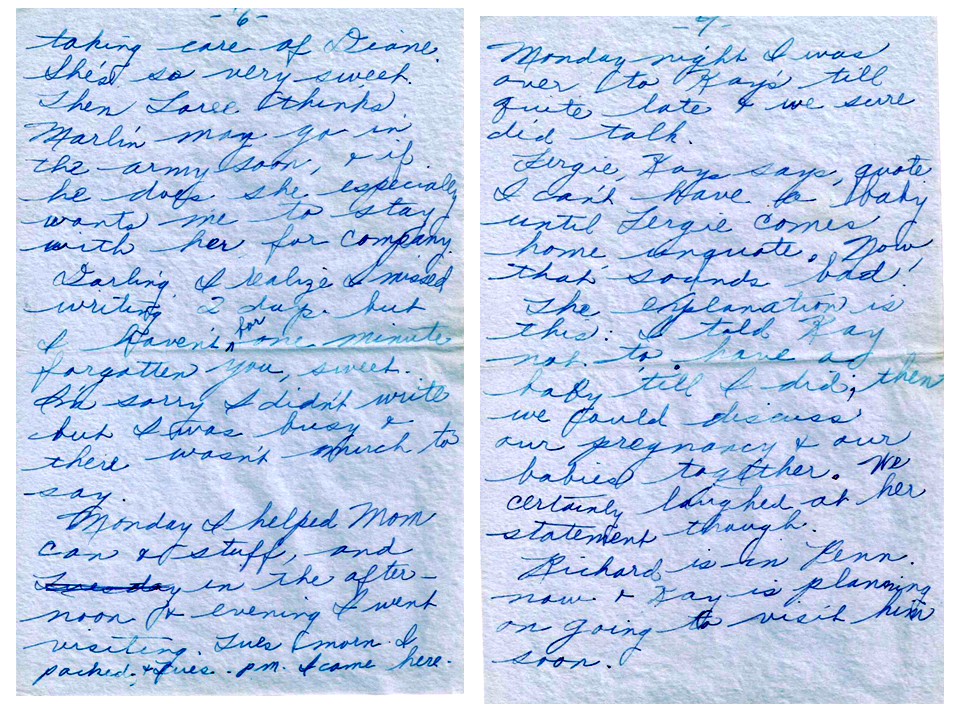 -6-
taking care of Diane.
She's so very sweet.
Then Loree thinks
Marlin may go in
the army soon, & if
he does she especially
wants me to stay
with her for company.
Darling, I realize I missed
writing 2 days. but
I haven't for one minute
forgotten you, sweet.
I'm sorry I didn't write
but I was busy &
there wasn't much to
say.
Monday I helped Mom
can & stuff, and
Tuesday in the after-
noon & evening I went
visiting. Tues morn. I
packed. & Tues. pm. I came here.
-7-
Monday night I was
over to Kay's till
quite late & we sure
did talk.
Fergie, Kay says, quote
I can't have a baby
until Fergie comes
home unquote. Now
that sounds bad!
The explanation is
this: I told Kay
not to have a
baby 'till I did; then
we could discuss
our pregnancy & our
babies together. We
certainly laughed at her
statement though.
Richard is in Penn.
now & Kay is planning
on going to visit him
soon.